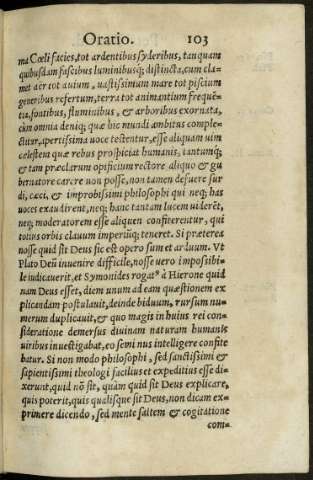 Oratio. 103
ma Cœli facies, tot ardentibus syderibus, tanquam
quibusdam fascibus luminibusq; distincta, cum cla-
met aer tot auium, uastissimum mare tot piscium
generibus refertum, terra tot animantium frequē-
tia, fontibus, fluminibus, & arboribus exornata,
cùm omnia deniq; quæ hic mundi ambitus comple-
ctitur, apertissima uoce testentur, esse aliquam uim
cælestem quæ rebus prospiciat humanis, tantumq;
& tam præclarum opificium rectore aliquo & gu
bernatore carere non posse, non tamen defuere sur
di, cæci, & improbissimi philosophi qui neq; has
uoces exaudirent, neq; hanc tantam lucem uiderēt,
neq; moderatorem esse aliquem confiterentur, qui
totius orbis clauum imperiũq; teneret. Si præterea
nosse quid sit Deus sic est opero sum et arduum. Vt
Plato Deũ inuenire difficile, nosse uero impossibi-
le iudicauerit, et Symonides rogat⁹ à Hierone quid
nam Deus esset, diem unum ad eam quæstionem ex
plicandam postulauit, deinde biduum, rursum nu-
merum duplicauit, & quo magis in huius rei con-
sideratione demersus diuinam naturam humanis
uiribus inuestigabat, eo semi nus intelligere confite
batur. Si non modo philosophi, sed sanctissimi &
sapientissimi theologi facilius et expeditius esse di-
xerunt, quid nō sit, quàm quid sit Deus explicare,
quis poterit, quis qualisque sit Deus, non dicam ex-
primere dicendo, sed mente saltem & cogitatione
com-